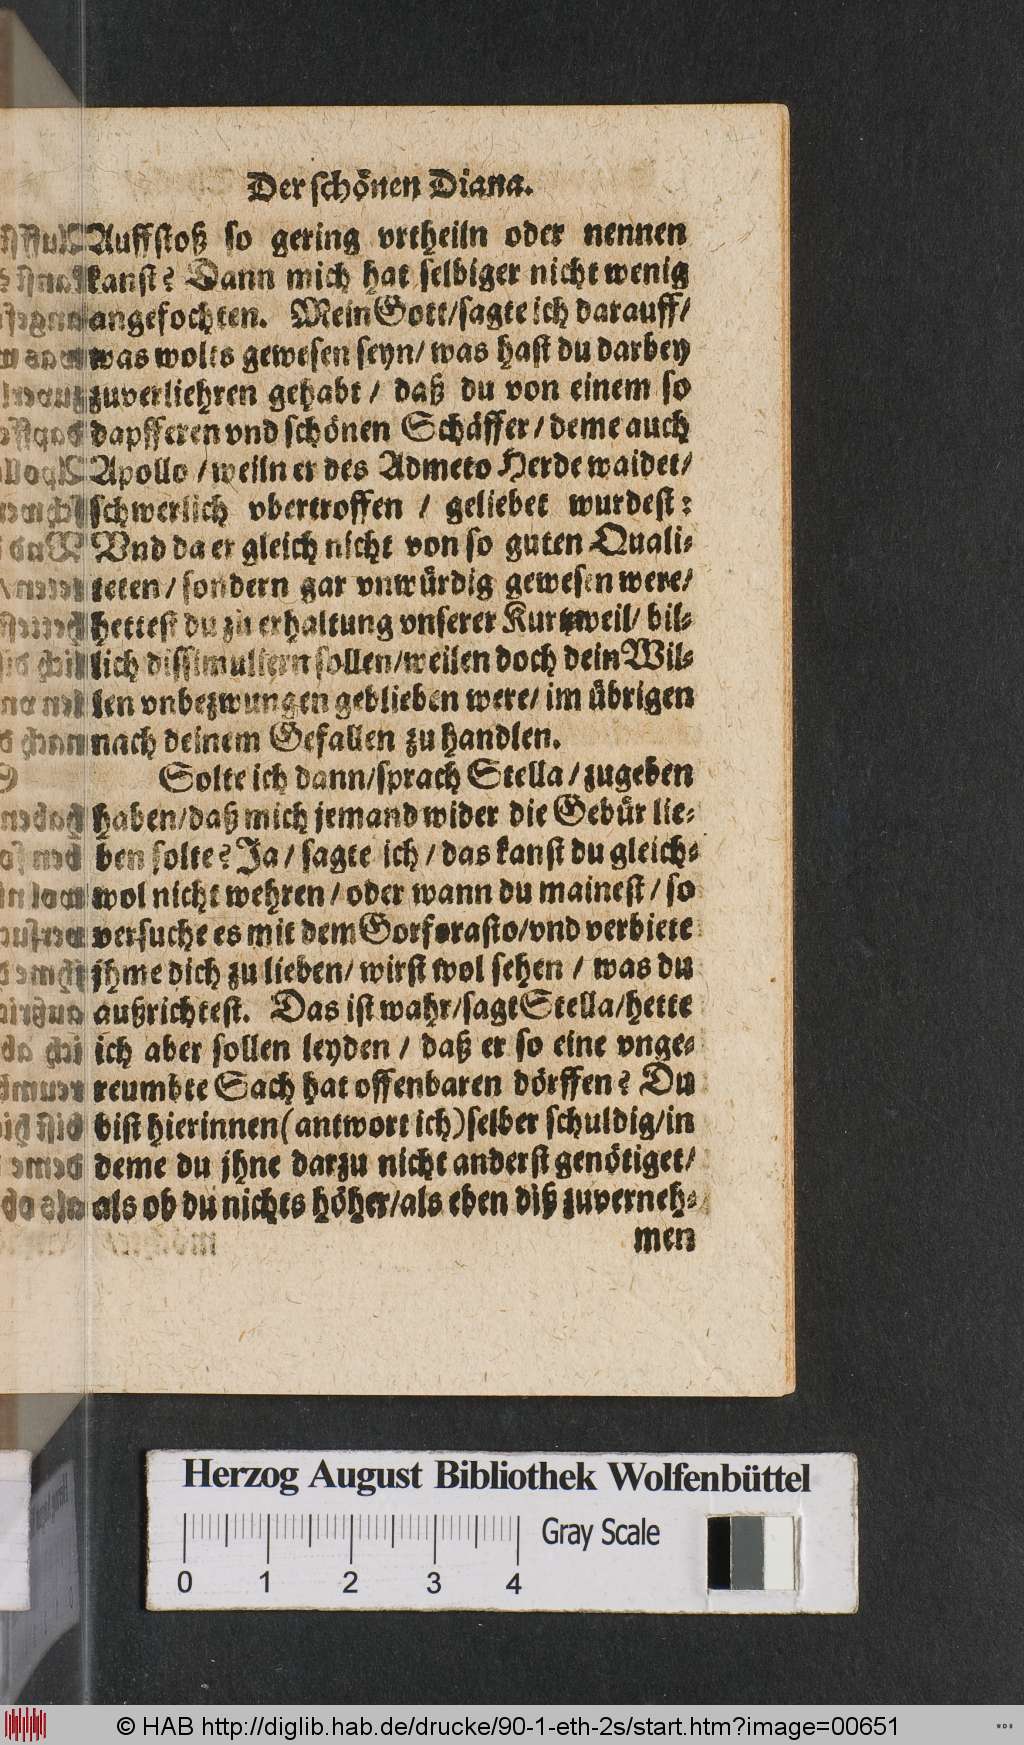 Der schönen Diana.
Auffstoß so gering vrtheiln oder nennen
kanst? Dann mich hat selbiger nicht wenig
angefochten. Mein Gott/sagte ich darauff/
was wolts gewesen seyn/ was hast du darbey
zuverliehren gehabt / daß du von einem so
dapfferen vnd schönen Schäffer / deme auch
Apollo / weiln er des Admeto Herde waidet/
schwerlich vbertroffen / geliebet wurdest:
Vnd da er gleich nicht von so guten Quali-
teten / sondern gar vnwürdig gewesen were/
hettest du zu erhaltung vnserer Kurtzweil/ bil-
lich dissimuliern sollen/weilen doch dein Wil-
len vnbezwungen geblieben were/ im übrigen
nach deinem Gefallen zu handlen.
Solte ich dann/sprach Stella / zugeben
haben/daß mich jemand wider die Gebür lie-
ben solte? Ja / sagte ich / das kanst du gleich-
wol nicht wehren / oder wann du mainest / so
versuche es mit dem Gorforasto/vnd verbiete
jhme dich zu lieben/ wirst wol sehen / was du
außrichtest. Das ist wahr/sagt Stella/hette
ich aber sollen leyden / daß er so eine vnge-
reumbte Sach hat offenbaren dörffen? Du
bist hierinnen (antwort ich) selber schuldig/in
deme du jhne darzu nicht anderst genötiget/
als ob du nichts höher/als eben diß zuverneh-
men
Herzog August Bibliothek Wolfenbüttel
Gray Scale
0 1 2 3 4
© HAB http://diglib.hab.de/drucke/90-1-eth-2s/start.htm?image=00651